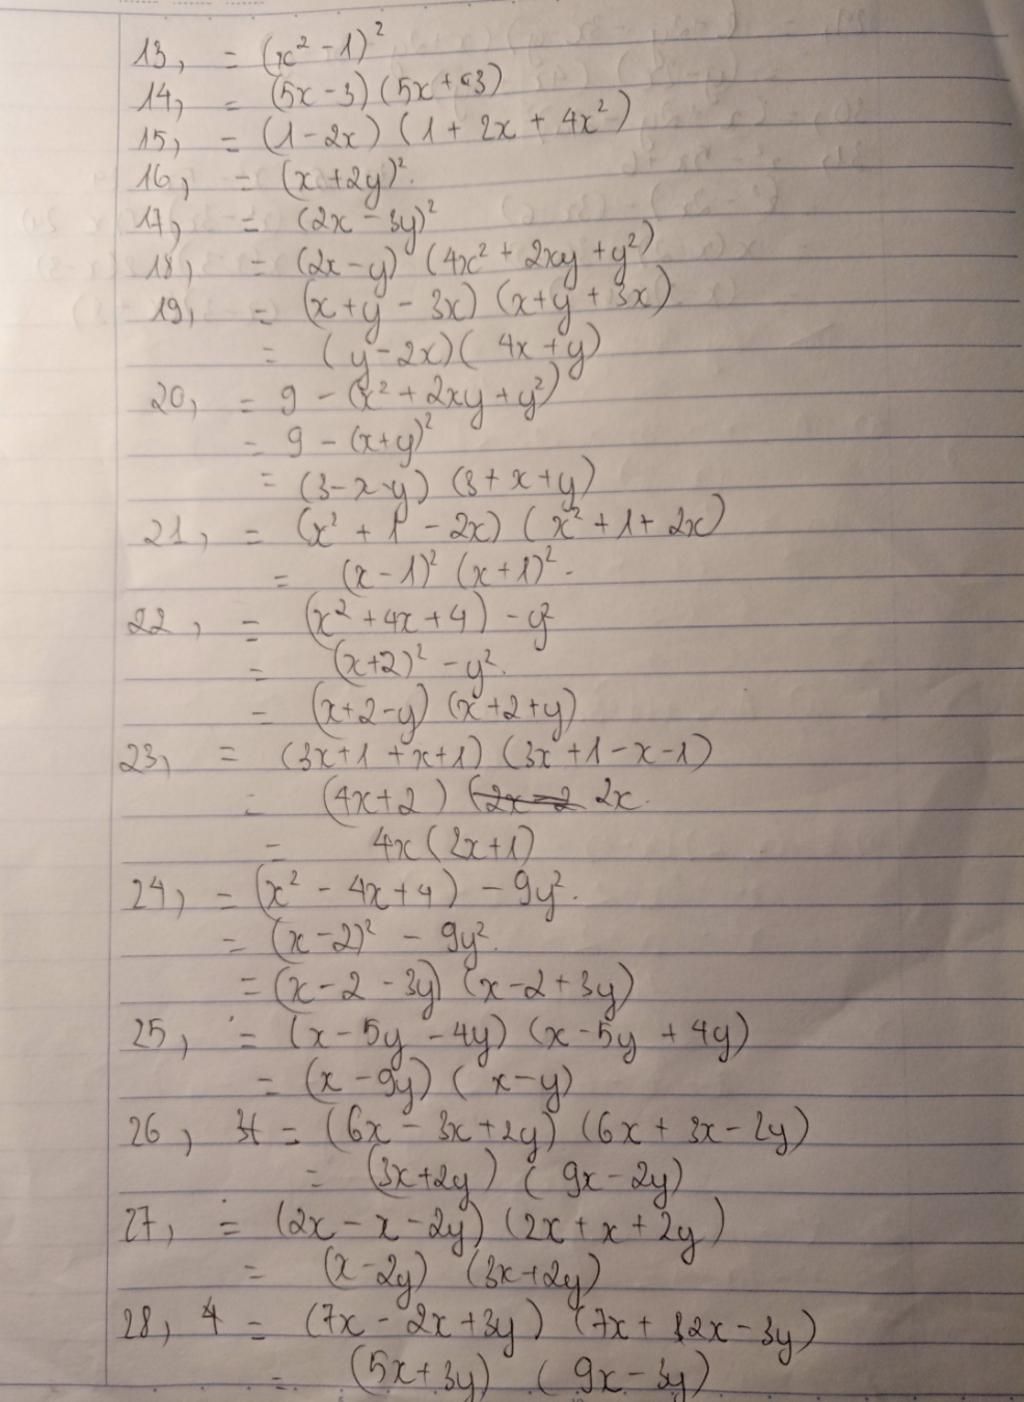 13, = (x² - 1)²
14, = (5x - 3) (5x + 3)
15, = (1 - 2x) (1 + 2x + 4x²)
16, = (x + 2y)².
17, = (2x - 3y)²
18, = (2x - y) (4x² + 2xy + y²)
19, = (x + y - 3x) (x + y + 3x)
= (y - 2x) ( 4x + y)
20, = 9 - (x² + 2xy + y²)
= 9 - (x + y)²
= (3 - x - y) (3 + x + y)
21, = (x² + 1 - 2x) ( x² + 1 + 2x)
= (x - 1)² (x + 1)².
22, = (x² + 4x + 4) - y²
= (x + 2)² - y².
= (x + 2 - y) (x + 2 + y)
23, = (3x + 1 + x + 1) (3x + 1 - x - 1)
= (4x + 2) (2x - 2 2x.
= 4x (2x + 1)
24, = (x² - 4x + 4) - 9y².
= (x - 2)² - 9y².
= (x - 2 - 3y) (x - 2 + 3y)
25, = (x - 5y - 4y) (x - 5y + 4y)
= (x - 9y) ( x - y)
26, = (6x - 3x + 2y) (6x + 3x - 2y)
= (3x + 2y) ( 9x - 2y)
27, = (2x - x - 2y) (2x + x + 2y)
= (x - 2y) (3x + 2y)
28, 4 = (7x - 2x + 3y) (7x + 2x - 3y)
= (5x + 3y) ( 9x - 3y)